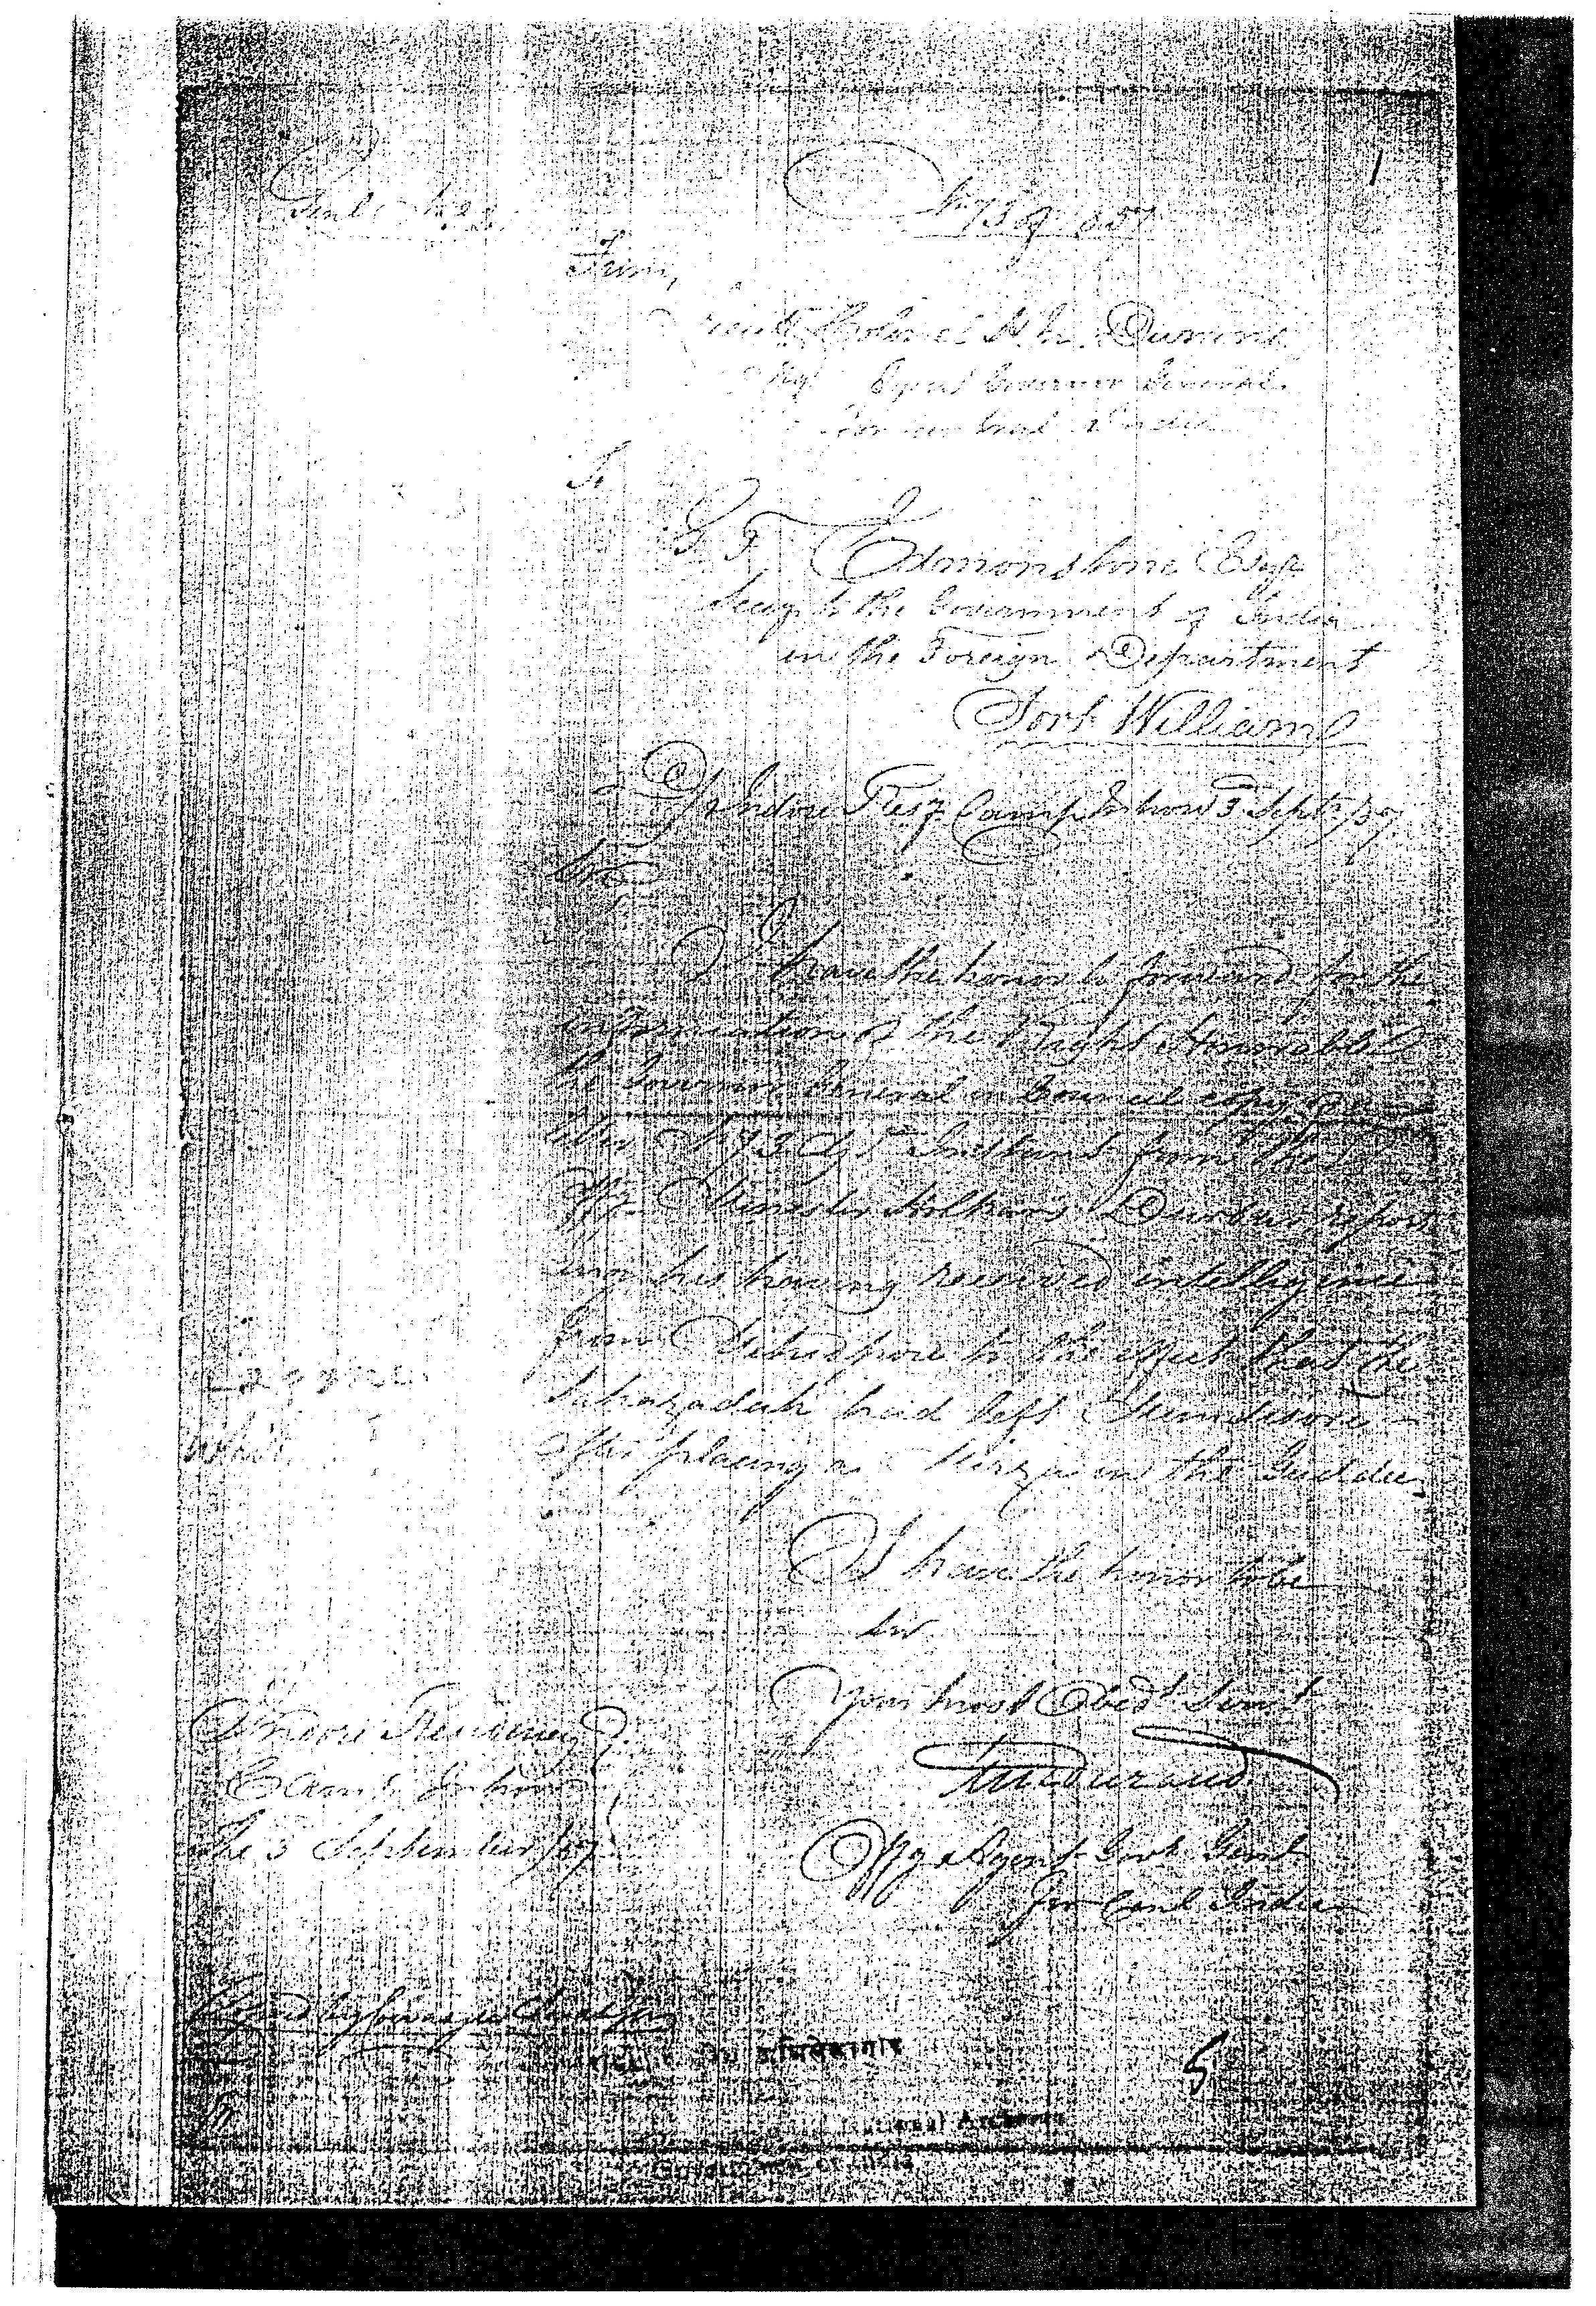 1
No 73 of 1857
From,
Lieut Colonel H. M. Durand
Offg Agent Governor General
for Central India
To
G. F. Edmonstone Esqr
Secy to the Government of India
in the Foreign Department
Fort William
Indore Resy Camp Mhow 3 Septr /57
Sir
I have the honor to forward for the
information of the Right Honorable
the Governor General in Council copy of a
letter No 73 of Instant from the
Offg Minister Holkar's Durbar report
ing his having received intelligence
from to the effect that the
Sahazadah had left Mundesore
after placing a Mirza on the Guddee
I have the honor to be
Sir
Your most Obedt Servt
HM Durand
Offg Agent Govr Genl
for Centl India
Indore Residency
Camp Mhow
The 3 September /57
अभिलेखागार
5
National Archives
Government of India